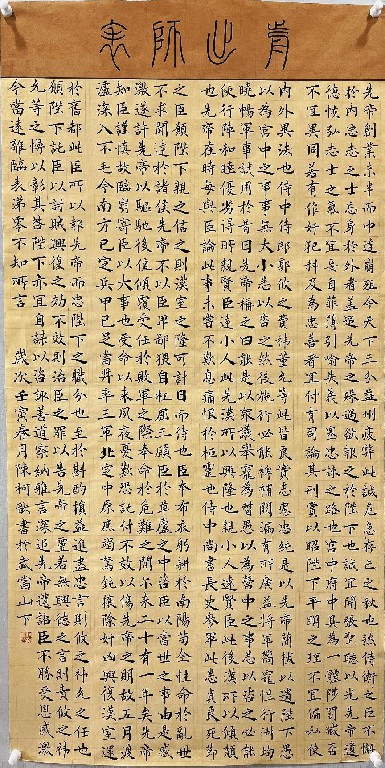 前出師表
先帝創業未半而中道崩殂今天下三分益州疲弊此誠危急存亡之秋也然侍衛之臣不懈
於內忠志之士忘身於外者蓋追先帝之殊遇欲報之於陛下也誠宜開張聖聽以光先帝遺
德恢弘志士之氣不宜妄自菲薄引喻失義以塞忠諫之路也宮中府中俱為一體陟罰臧否
不宜異同若有作奸犯科及為忠善者宜付有司論其刑賞以昭陛下平明之理不宜偏私使
內外異法也侍中侍郎郭攸之費禕董允等此皆良實志慮忠純是以先帝簡拔以遺陛下愚
以為宮中之事事無大小悉以咨之然後施行必能裨補闕漏有所廣益將軍向寵性行淑均
曉暢軍事試用於昔日先帝稱之曰能是以眾議舉寵為督愚以為營中之事悉以咨之必能
使行陣和睦優劣得所親賢臣遠小人此先漢所以興隆也親小人遠賢臣此後漢所以傾頹
也先帝在時每與臣論此事未嘗不歎息痛恨於桓靈也侍中尚書長史參軍此悉貞良死節
之臣願陛下親之信之則漢室之隆可計日而待也臣本布衣躬耕於南陽苟全性命於亂世
不求聞達於諸侯先帝不以臣卑鄙猥自枉屈三顧臣於草廬之中諮臣以當世之事由是感
激遂許先帝以驅馳後值傾覆受任於敗軍之際奉命於危難之間爾來二十有一年矣先帝
知臣謹慎故臨崩寄臣以大事也受命以來夙夜憂歎恐託付不效以傷先帝之明故五月渡
瀘深入不毛今南方已定兵甲已足當獎率三軍北定中原庶竭駑鈍攘除奸凶興復漢室還
於舊都此臣所以報先帝而忠陛下之職分也至於斟酌損益進盡忠言則攸之禕允之任也
願陛下託臣以討賊興復之效不效則治臣之罪以告先帝之靈若無興德之言則責攸之禕
允等之慢以彰其咎陛下亦宜自謀以諮諏善道察納雅言深追先帝遺詔臣不勝受恩感激
今當遠離臨表涕零不知所言 歲次壬寅春月陳柯書於武當山下